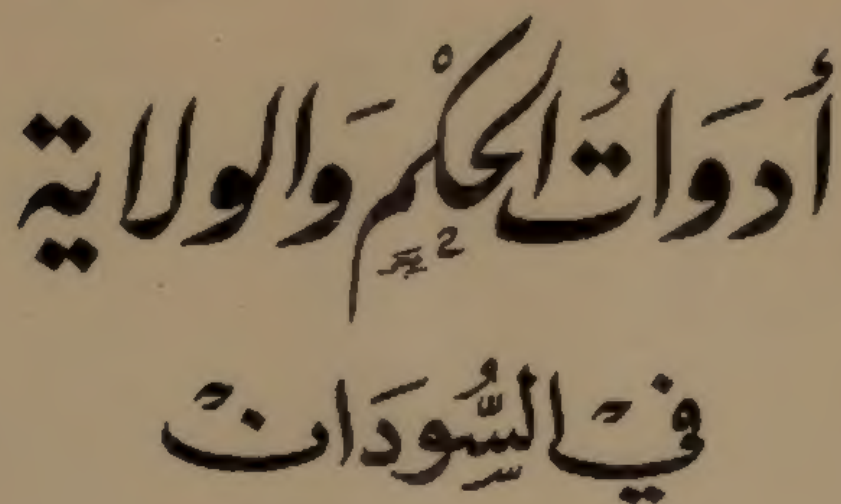 أَدَوَاتُ الحُكْمِ وَالولايَة
في السُّودَانْ